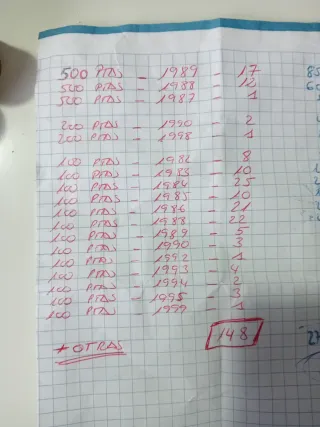 500 PTAS - 1989 - 17
500 PTAS - 1988 - 12
500 PTAS - 1987 - 1
200 PTAS - 1990 - 2
200 PTAS - 1998 - 1
100 PTAS - 1982 - 8
100 PTAS - 1983 - 10
100 PTAS - 1984 - 25
100 PTAS - 1985 - 10
100 PTAS - 1986 - 21
100 PTAS - 1988 - 22
100 PTAS - 1989 - 5
100 PTAS - 1990 - 3
100 PTAS - 1992 - 1
100 PTAS - 1993 - 4
100 PTAS - 1994 - 2
100 PTAS - 1995 - 3
100 PTAS - 1999 - 1
+ OTRAS 148